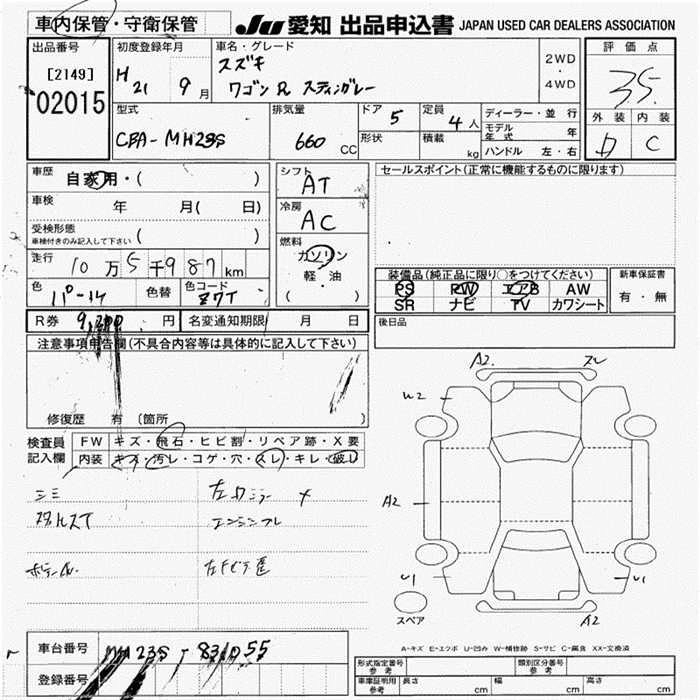 車内保管・守衛保管
JU 愛知 出品申込書 JAPAN USED CAR DEALERS ASSOCIATION
出品番号
[2149]
02015
初度登録年月
H 21 9月
車名・グレード
スズキ
ワゴンR スティングレー
2WD
・
4WD
評価点
3.5
外装 内装
D C
型式
CBA-MH23S
排気量
660 CC
ドア 5
形状
定員 4人
積載 kg
ディーラー・並行
モデル年式 年
ハンドル 左・右
車歴 自家用・( )
車検 年 月( 日)
受検形態
車検付きのみ記入して下さい ( )
走行 10万5千987km
色 パール 色替 色コード Z7T
R券 円 名変通知期限 月 日
シフト
AT
冷房
AC
燃料
ガソリン
軽・油
( )
セールスポイント(正常に機能するものに限ります)
装備品(純正品に限り○をつけてください)
PS PW エアB AW
SR ナビ TV カワシート
新車保証書
有・無
後日品
注意事項申告欄(不具合内容等は具体的に記入して下さい)
修復歴 有 (箇所
検査員記入欄
FW キズ・飛石・ヒビ割・リペア跡・X要
内装 キズ・汚レ・コゲ・穴・スレ・キレ・破レ
左Dミラー
A2
スレ
W2
A2
U1
U1
A2
スペア
A-キズ E-エクボ U-凹み W-補修跡 S-サビ C-腐食 XX-交換済
車台番号 MH23S-831055
登録番号
形式指定番号 参考
類別区分番号 参考
車庫証明用 参考 長さ cm 幅 cm 高さ cm